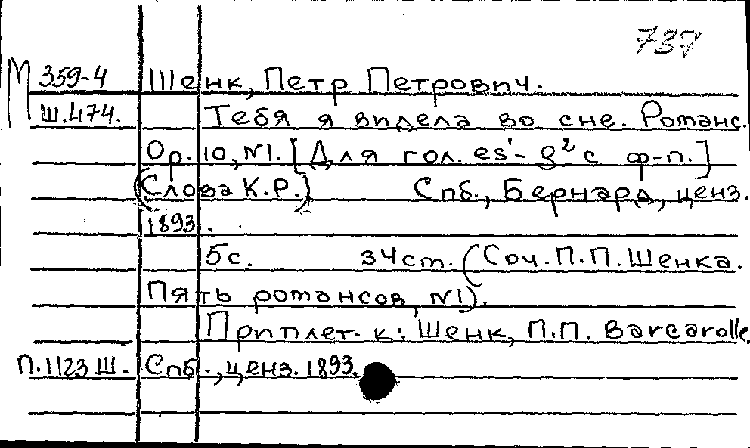 737
М 359-4 Шенк, Петр Петрович.
Ш.474. Тебя я видела во сне. Романс.
Op. 10, N1. [Для гол. es'-g² с ф-п.]
(Слова К.Р.) Спб., Бернард, ценз.
1893.
5с. 34ст. (Соч. П.П. Шенка.
Пять романсов, N1).
Приплет. к: Шенк, П.П. Barcarolle.
П.1123 Ш. Спб., ценз. 1893.